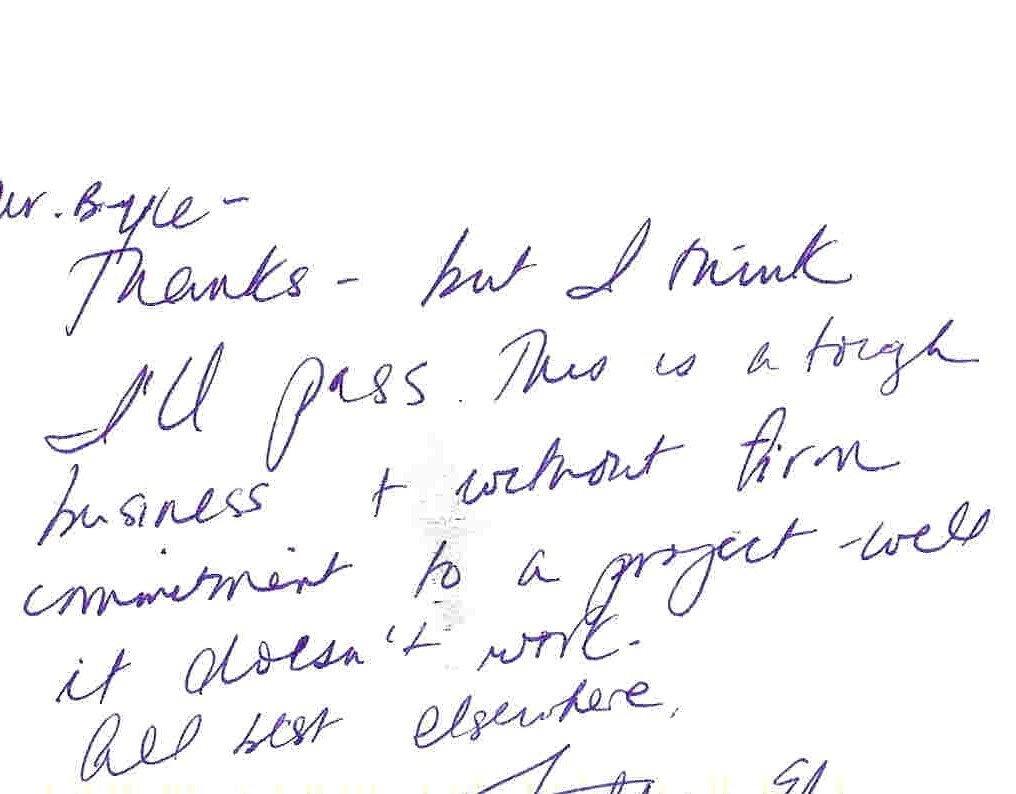 Mr. Boyle -
Thanks - but I think
I'll pass. This is a tough
business + without firm
commitment to a project - well
it doesn't work.
All best elsewhere,